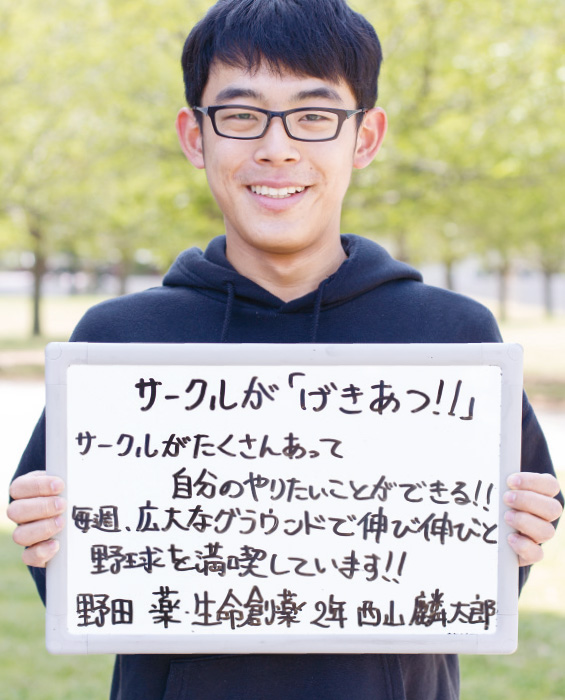 サークルが「げきあつ!!」
サークルがたくさんあって
自分のやりたいことができる!!
毎週、広大なグラウンドで伸び伸びと
野球を満喫しています!!
野田 薬・生命創薬 2年 西山 麟太郎